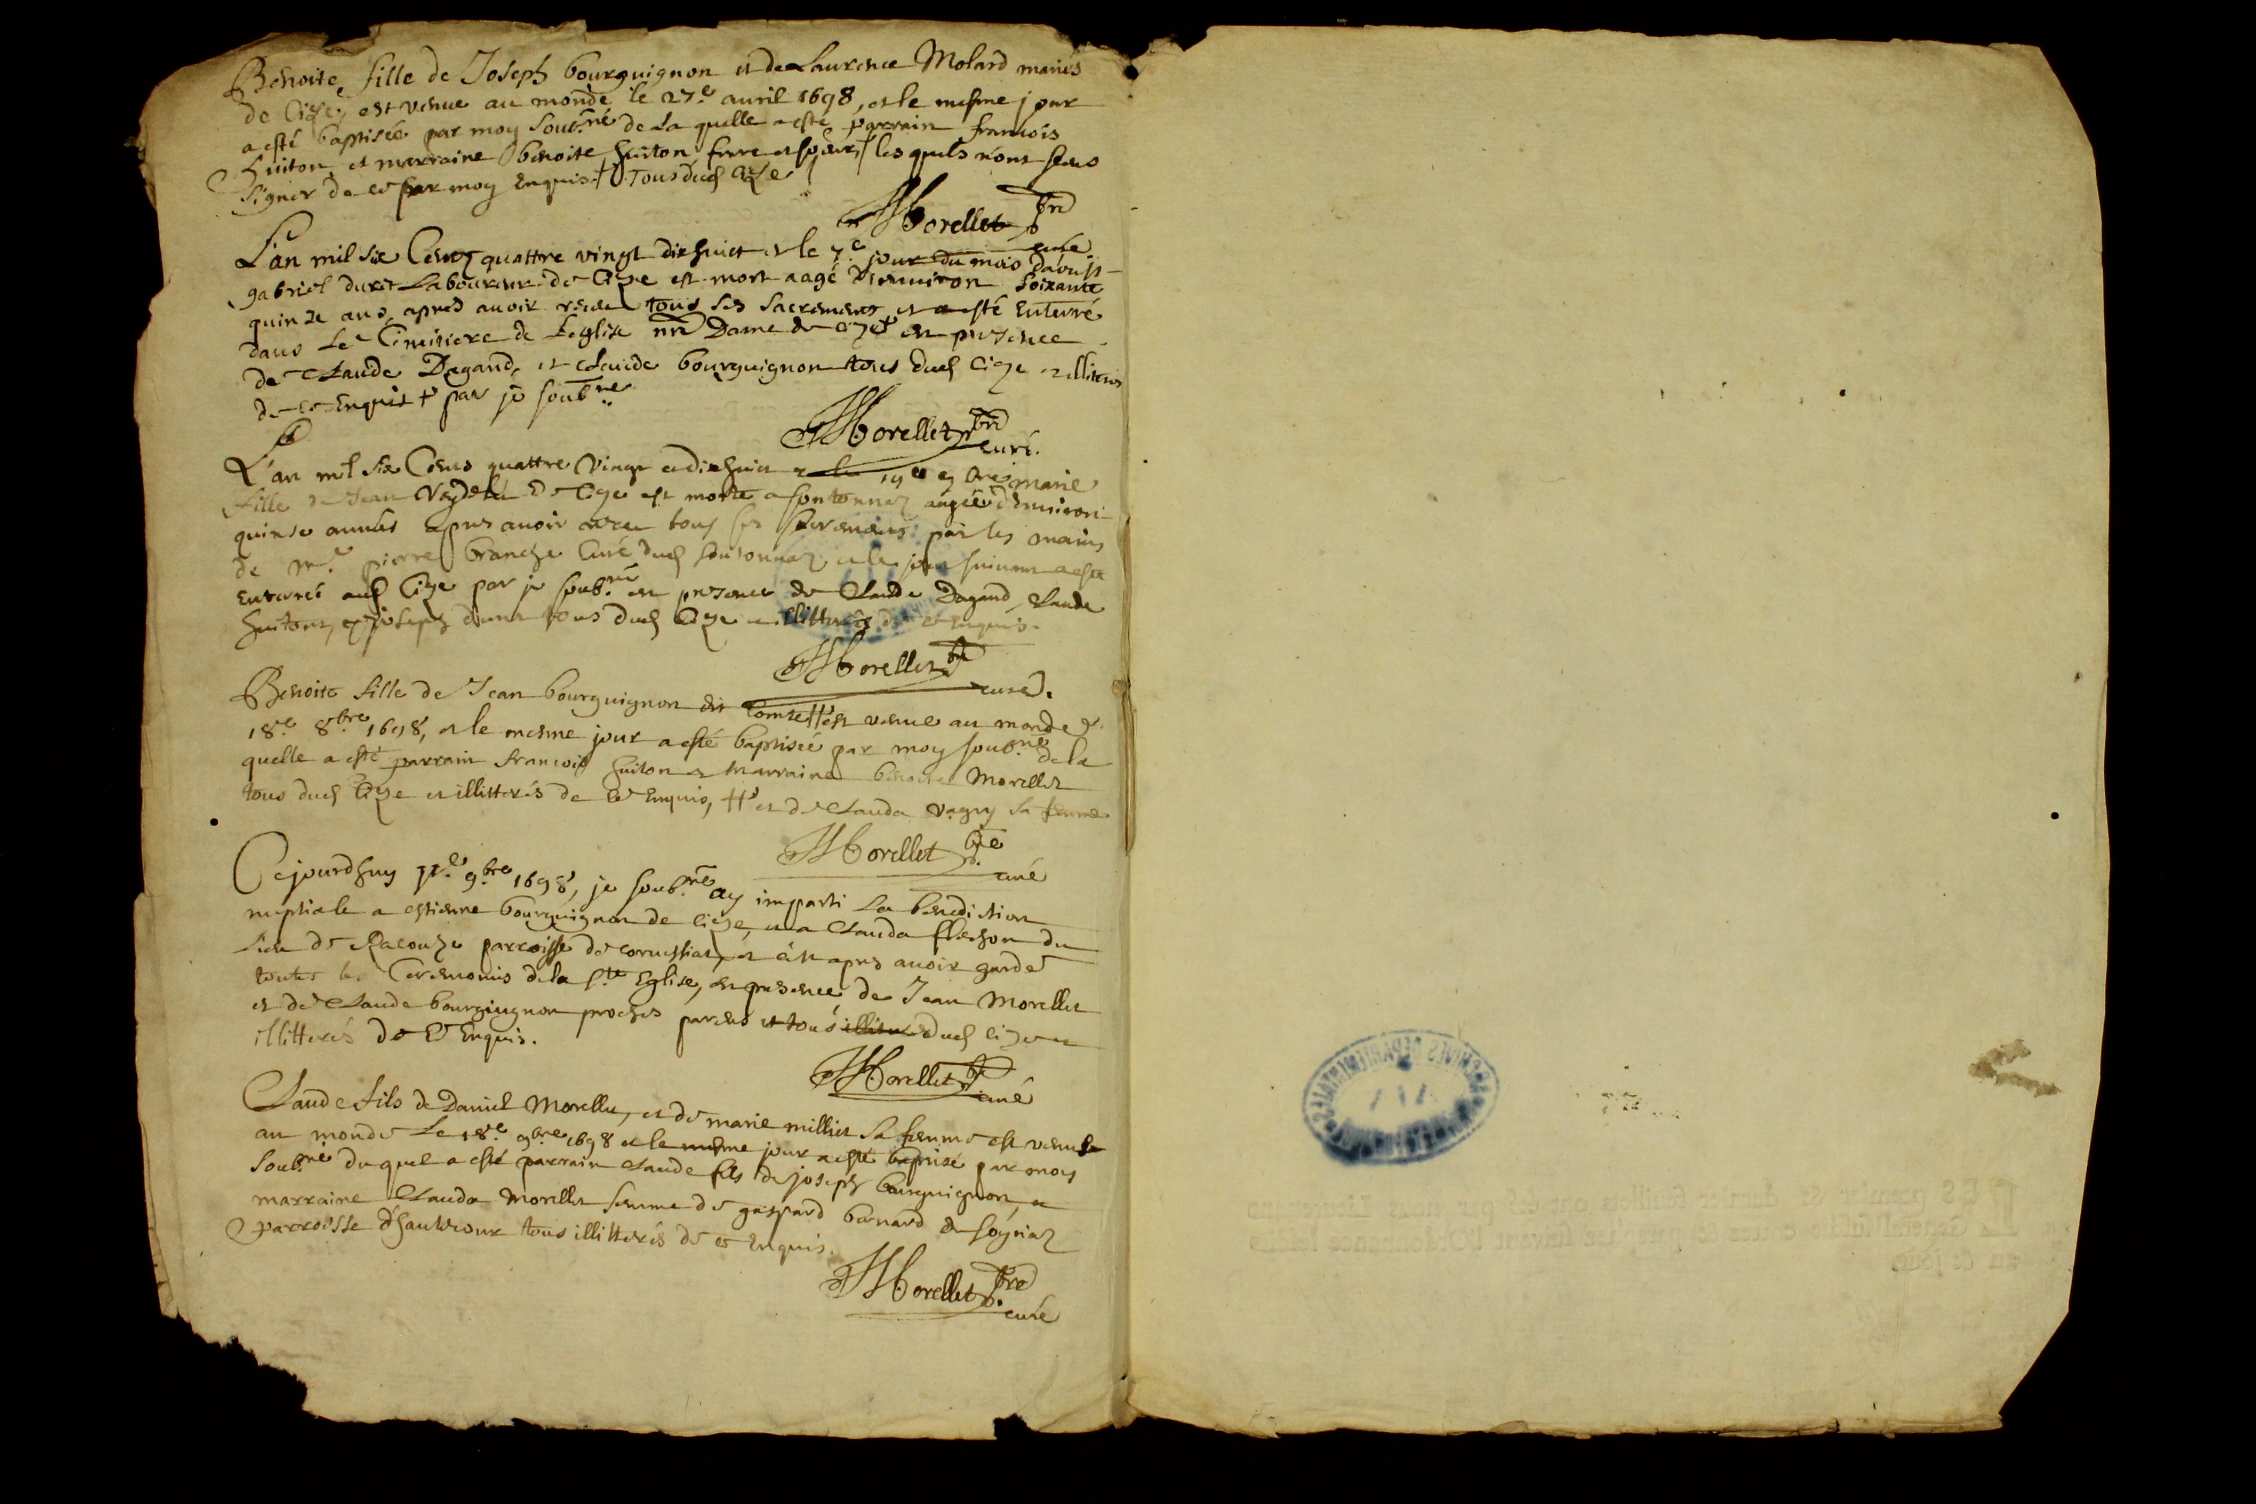 Benoite fille de Joseph bourguignon et de Laurence Molard mariés
de Cize, est venue au monde le 27.e auril 1698, et le mesme jour
a esté baptisée par moy soub.né de la quelle a esté parrain francois
huiton et marraine benoite huiton frere et soeur, les quels n'ont sceu
signer de ce par moy Enquis + Tous dud Cize
Morellet pbre
curé
L'an mil six Cents quattre vingt dix huict et le 7.e jour du mois d'aoust
gabriel duret Laboureur de Cize est mort aagé d'enuiron soixante
quinze ans, apres auoir receu tous ses sacremens, et a esté Enterré
dans Le Cimitiere de l'eglise nre Dame de Cize en presence
de Claude Dagand, et Claude bourguignon tous dud Cize illitterés
de ce Enquis + par je soub.né
Morellet pbre
curé.
L'an mil six Cents quattre vingt et dix huict et le 19.e bre marie
fille de Jean de Cize est morte a soutonnaz aagée d'enuiron
quinse années apres auoir receu tous ses sacremens par les mains
de m.e pierre branche Curé dud soutonnaz et le jour suiuant a esté
enterrée aud Cize par je soub.né en presence de Claude Dagand, Claude
huiton, et joseph tous dud Cize illitterés de ce enquis.
Morellet pbre
curé.
Benoite fille de Jean bourguignon dit Comte # est venue au monde le
18.e 8.bre 1698, et le mesme jour a esté baptisée par moy soub.né de la
quelle a esté parrain francois huiton et marraine benoite Morellet
tous dud Cize et illitterés de ce Enquis, # et de Clauda vagny sa femme
Morellet pbre
curé
Cejourdhuy 9.bre 1698, je soub.né ay imparti La benediction
nuptiale a estienne bourguignon de Cize, et a Clauda flechon du
lieu de Racouze parroisse de corueissiat, et apres auoir gardé
toutes les Ceremonies de la s.te Eglise, en presence de Jean Morellet
et de Claude bourguignon proches parens et tous illitterés dud Cize et
illitterés de Ce Enquis.
Morellet pbre
curé
Claude fils de Daniel Morellet, et de marie milliet sa femme est venu
au monde Le 18.e 9.bre 1698 et le mesme jour a esté baptisé par moy
soub.né du quel a esté parrain Claude fils de joseph bourguignon, et
marraine Clauda Morellet femme de gaspard bernard de
parroisse d'hautecour tous illitterés de ce Enquis.
Morellet pbre
curé